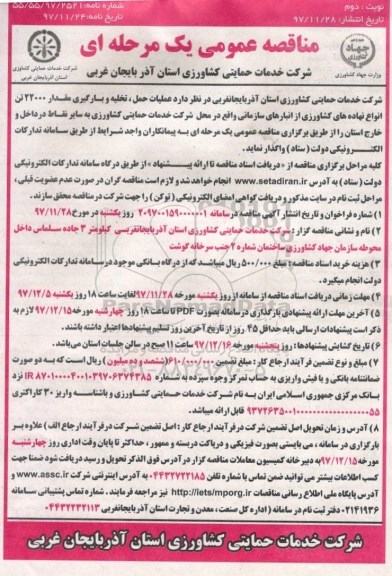 نوبت : دوم
تاریخ انتشار: ۹۷/۱۱/۲۸
شماره نامه: ۵۵/۵۵/۹۷/۲۵۲۱
تاریخ نامه: ۹۷/۱۱/۲۴
مناقصه عمومی یک مرحله ای
شرکت خدمات حمایتی کشاورزی استان آذربایجان غربی
جهاد
وزارت جهاد کشاورزی
شرکت خدمات حمایتی کشاورزی
استان آذربایجان غربی
شرکت خدمات حمایتی کشاورزی استان آذربایجانغربی در نظر دارد عملیات حمل ، تخلیه و بارگیری مقدار ۲۲۰۰۰ تن
انواع نهاده های کشاورزی از انبارهای سازمانی واقع در محل شرکت خدمات حمایتی کشاورزی به سایر نقاط در داخل و
خارج استان را از طریق برگزاری مناقصه عمومی یک مرحله ای به پیمانکاران واجد شرایط از طریق سامانه تدارکات
الکترونیکی دولت ( ستاد ) واگذار نماید.
کلیه مراحل برگزاری مناقصه از « دریافت اسناد مناقصه تا ارائه پیشنهاد » از طریق درگاه سامانه تدارکات الکترونیکی
دولت (ستاد ) به آدرس www.setadiran.ir انجام خواهد شد و لازم است مناقصه گران در صورت عدم عضویت قبلی ،
مراحل ثبت نام در سایت مذکور و دریافت گواهی امضای الکترونیکی (توکن) را جهت شرکت در مناقصه محقق سازند.
۱) شماره فراخوان و تاریخ انتشار آگهی مناقصه در سامانه ۲۰۹۷۰۰۱۵۹۰۰۰۰۰۰۱ روز یکشنبه در مورخ ۹۷/۱۱/۲۸
۲) نام و نشانی مناقصه گزار : شرکت خدمات حمایتی کشاورزی استان آذربایجانغربی کیلومتر ۳ جاده سلماس داخل
محوطه سازمان جهاد کشاورزی ساختمان شماره ۲ جنب سرخانه گوشت
۳) هزینه خرید اسناد مناقصه : مبلغ ۵۰۰/۰۰۰ ریال میباشد که از درگاه بانکی موجود در سامانه تدارکات الکترونیکی
دولت انجام میگیرد.
۴) مهلت زمانی دریافت اسناد مناقصه از سامانه از روز یکشنبه مورخه ۹۷/۱۱/۲۸ لغایت ساعت ۱۸ روز یکشنبه ۹۷/۱۲/۵
۵) آخرین مهلت ارائه پیشنهادی بارگذاری در سامانه بصورت PDF تا ساعت ۱۸ روز چهارشنبه مورخه ۹۷/۱۲/۱۵ لازم به
ذکر است پیشنهادات ارسالی باید حداقل ۴۵ روز از تاریخ آخرین روز تسلیم پیشنهادها اعتبار داشته باشند.
۶) تاریخ گشایش پیشنهادها : روز پنجشنبه مورخه ۹۷/۱۲/۱۶ ساعت ۱۱ صبح در سالن جلسات استان می باشد.
۷) مبلغ و نوع تضمین فرآیند ارجاع کار : مبلغ تضمین ۶۱۰/۰۰۰/۰۰۰ (ششصد و ده میلیون ) ریال است که به دو صورت
ضمانتنامه بانکی و یا فیش واریزی به حساب تمرکز وجوه سپرده به شماره
بانک مرکزی جمهوری اسلامی ایران به نام شرکت خدمات حمایتی کشاورزی و با شناسه واریز ۳۰ کاراکتری
قابل ارائه میباشد.
۸) آدرس و زمان تحویل اصل تضمین شرکت در فرآیند ارجاع کار : اصل تضمین شرکت در فرآیند ارجاع کار (الف) علاوه بر
بارگزاری در سامانه ، می بایستی بصورت فیزیکی و درپاکت دربسته و ممهور ، حداکثر تا پایان وقت اداری روز چهارشنبه
مورخه ۹۷/۱۲/۱۵ به دبیر خانه کمیسیون معاملات مناقصه گزار در آدرس فوق الذکر تحویل و رسید دریافت شود ضمنا جهت
کسب اطلاعات بیشتر می توانید ضمن تماس با شماره تلفن ۰۴۴۳۲۷۲۲۱۸۵ به آدرس اینترنتی شرکت www.assc.ir و
آدرس پایگاه ملی اطلاع رسانی مناقصات http://iets/mporg.ir نیز مراجعه فرمایند . شماره تماس پشتیبانی سامانه
۰۲۱۴۱۹۳۶ دفتر ثبت نام در سامانه ( اداره کل صنعت ، معدن و تجارت استان آذربایجانغربی ۰۴۴۳۲۲۳۲۱۱۳
شرکت خدمات حمایتی کشاورزی استان آذربایجان غربی